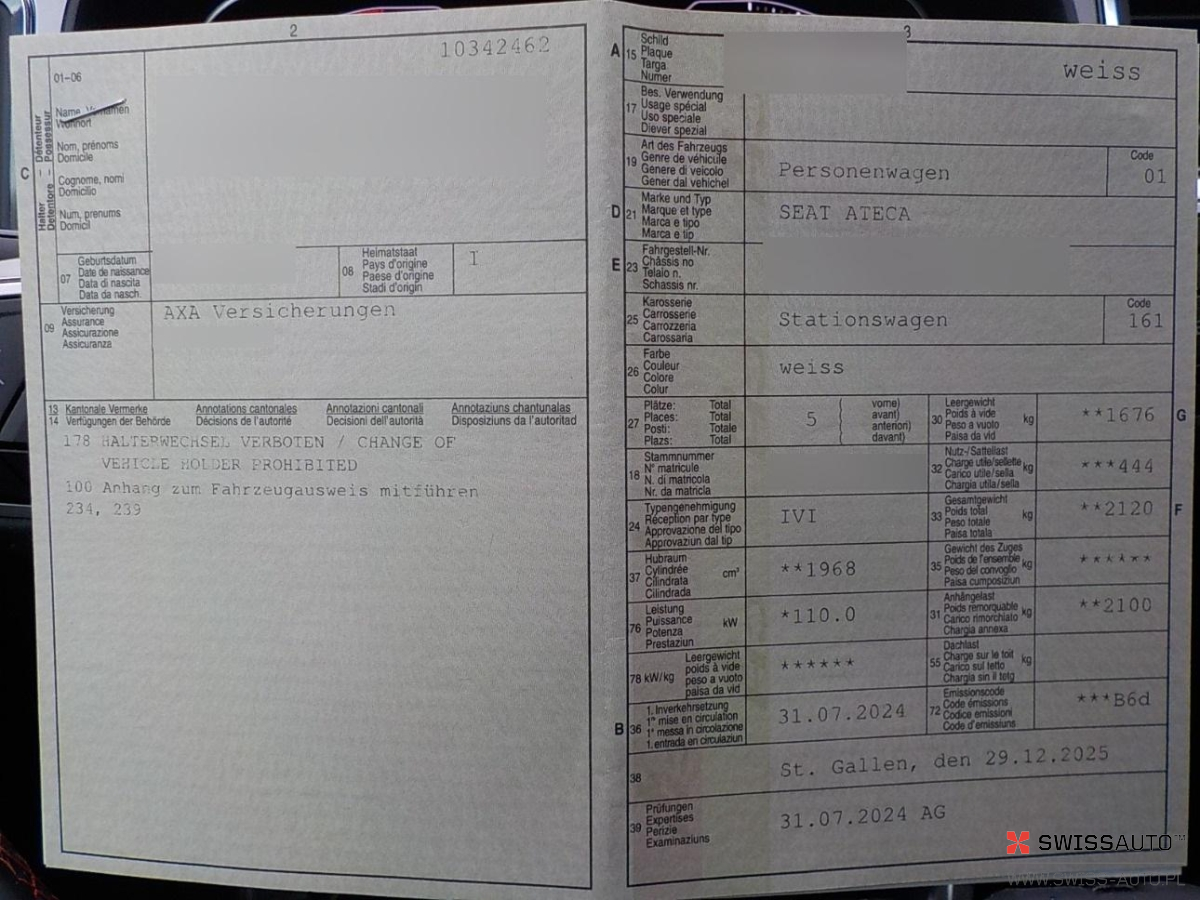 2
10342462
01-06
Name, Vornamen
Wohnort
Nom, prénoms
Domicile
Cognome, nomi
Domicilio
Num, prenums
Domicil
C
Halter – Détenteur
Detentore – Possessur
07
Geburtsdatum
Date de naissance
Data di nascita
Data da nasch.
08
Heimatstaat
Pays d'origine
Paese d'origine
Stadi d'origin
I
09
Versicherung
Assurance
Assicurazione
Assicuranza
AXA Versicherungen
13 Kantonale Vermerke Annotations cantonales Annotazioni cantonali Annotaziuns chantunalas
14 Verfügungen der Behörde Décisions de l'autorité Decisioni dell'autorità Disposiziuns da l'autoritad
178 HALTERWECHSEL VERBOTEN / CHANGE OF
VEHICLE HOLDER PROHIBITED
100 Anhang zum Fahrzeugausweis mitführen
234, 239
3
A
15
Schild
Plaque
Targa
Numer
weiss
17
Bes. Verwendung
Usage spécial
Uso speciale
Diever spezial
19
Art des Fahrzeugs
Genre de véhicule
Genere di veicolo
Gener dal vehichel
Personenwagen
Code
01
D
21
Marke und Typ
Marque et type
Marca e tipo
Marca e tip
SEAT ATECA
E
23
Fahrgestell-Nr.
Châssis no
Telaio n.
Schassis nr.
25
Karosserie
Carrosserie
Carrozzeria
Carossaria
Stationswagen
Code
161
26
Farbe
Couleur
Colore
Colur
weiss
27
Plätze: Total
Places: Total
Posti: Totale
Plazs: Total
5
( vorne)
avant)
anteriori)
( davant)
30
Leergewicht
Poids à vide
Peso a vuoto
Paisa da vid
kg
**1676
G
18
Stammnummer
N° matricule
N. di matricola
Nr. da matricla
32
Nutz-/Sattellast
Charge utile/sellette
Carico utile/sella
Chargia utila/sella
kg
***444
24
Typengenehmigung
Réception par type
Approvazione del tipo
Approvaziun dal tip
IVI
33
Gesamtgewicht
Poids total
Peso totale
Paisa totala
kg
**2120
F
37
Hubraum
Cylindrée
Cilindrata
Cilindrada
cm³
**1968
35
Gewicht des Zuges
Poids de l'ensemble
Peso del convoglio
Paisa cumposiziun
kg
******
76
Leistung
Puissance
Potenza
Prestaziun
kW
*110.0
31
Anhängelast
Poids remorquable
Carico rimorchiato
Chargia annexa
kg
**2100
78 kW/kg
Leergewicht
poids à vide
peso a vuoto
paisa da vid
******
55
Dachlast
Charge sur le toit
Carico sul tetto
Chargia sin il tetg
kg
B
36
1. Inverkehrsetzung
1re mise en circulation
1a messa in circolazione
1. entrada en circulaziun
31.07.2024
72
Emissionscode
Code émissions
Codice emissioni
Code d'emissiuns
***B6d
38
St. Gallen, den 29.12.2025
39
Prüfungen
Expertises
Perizie
Examinaziuns
31.07.2024 AG
SWISSAUTO™
WWW.SWISS-AUTO.PL